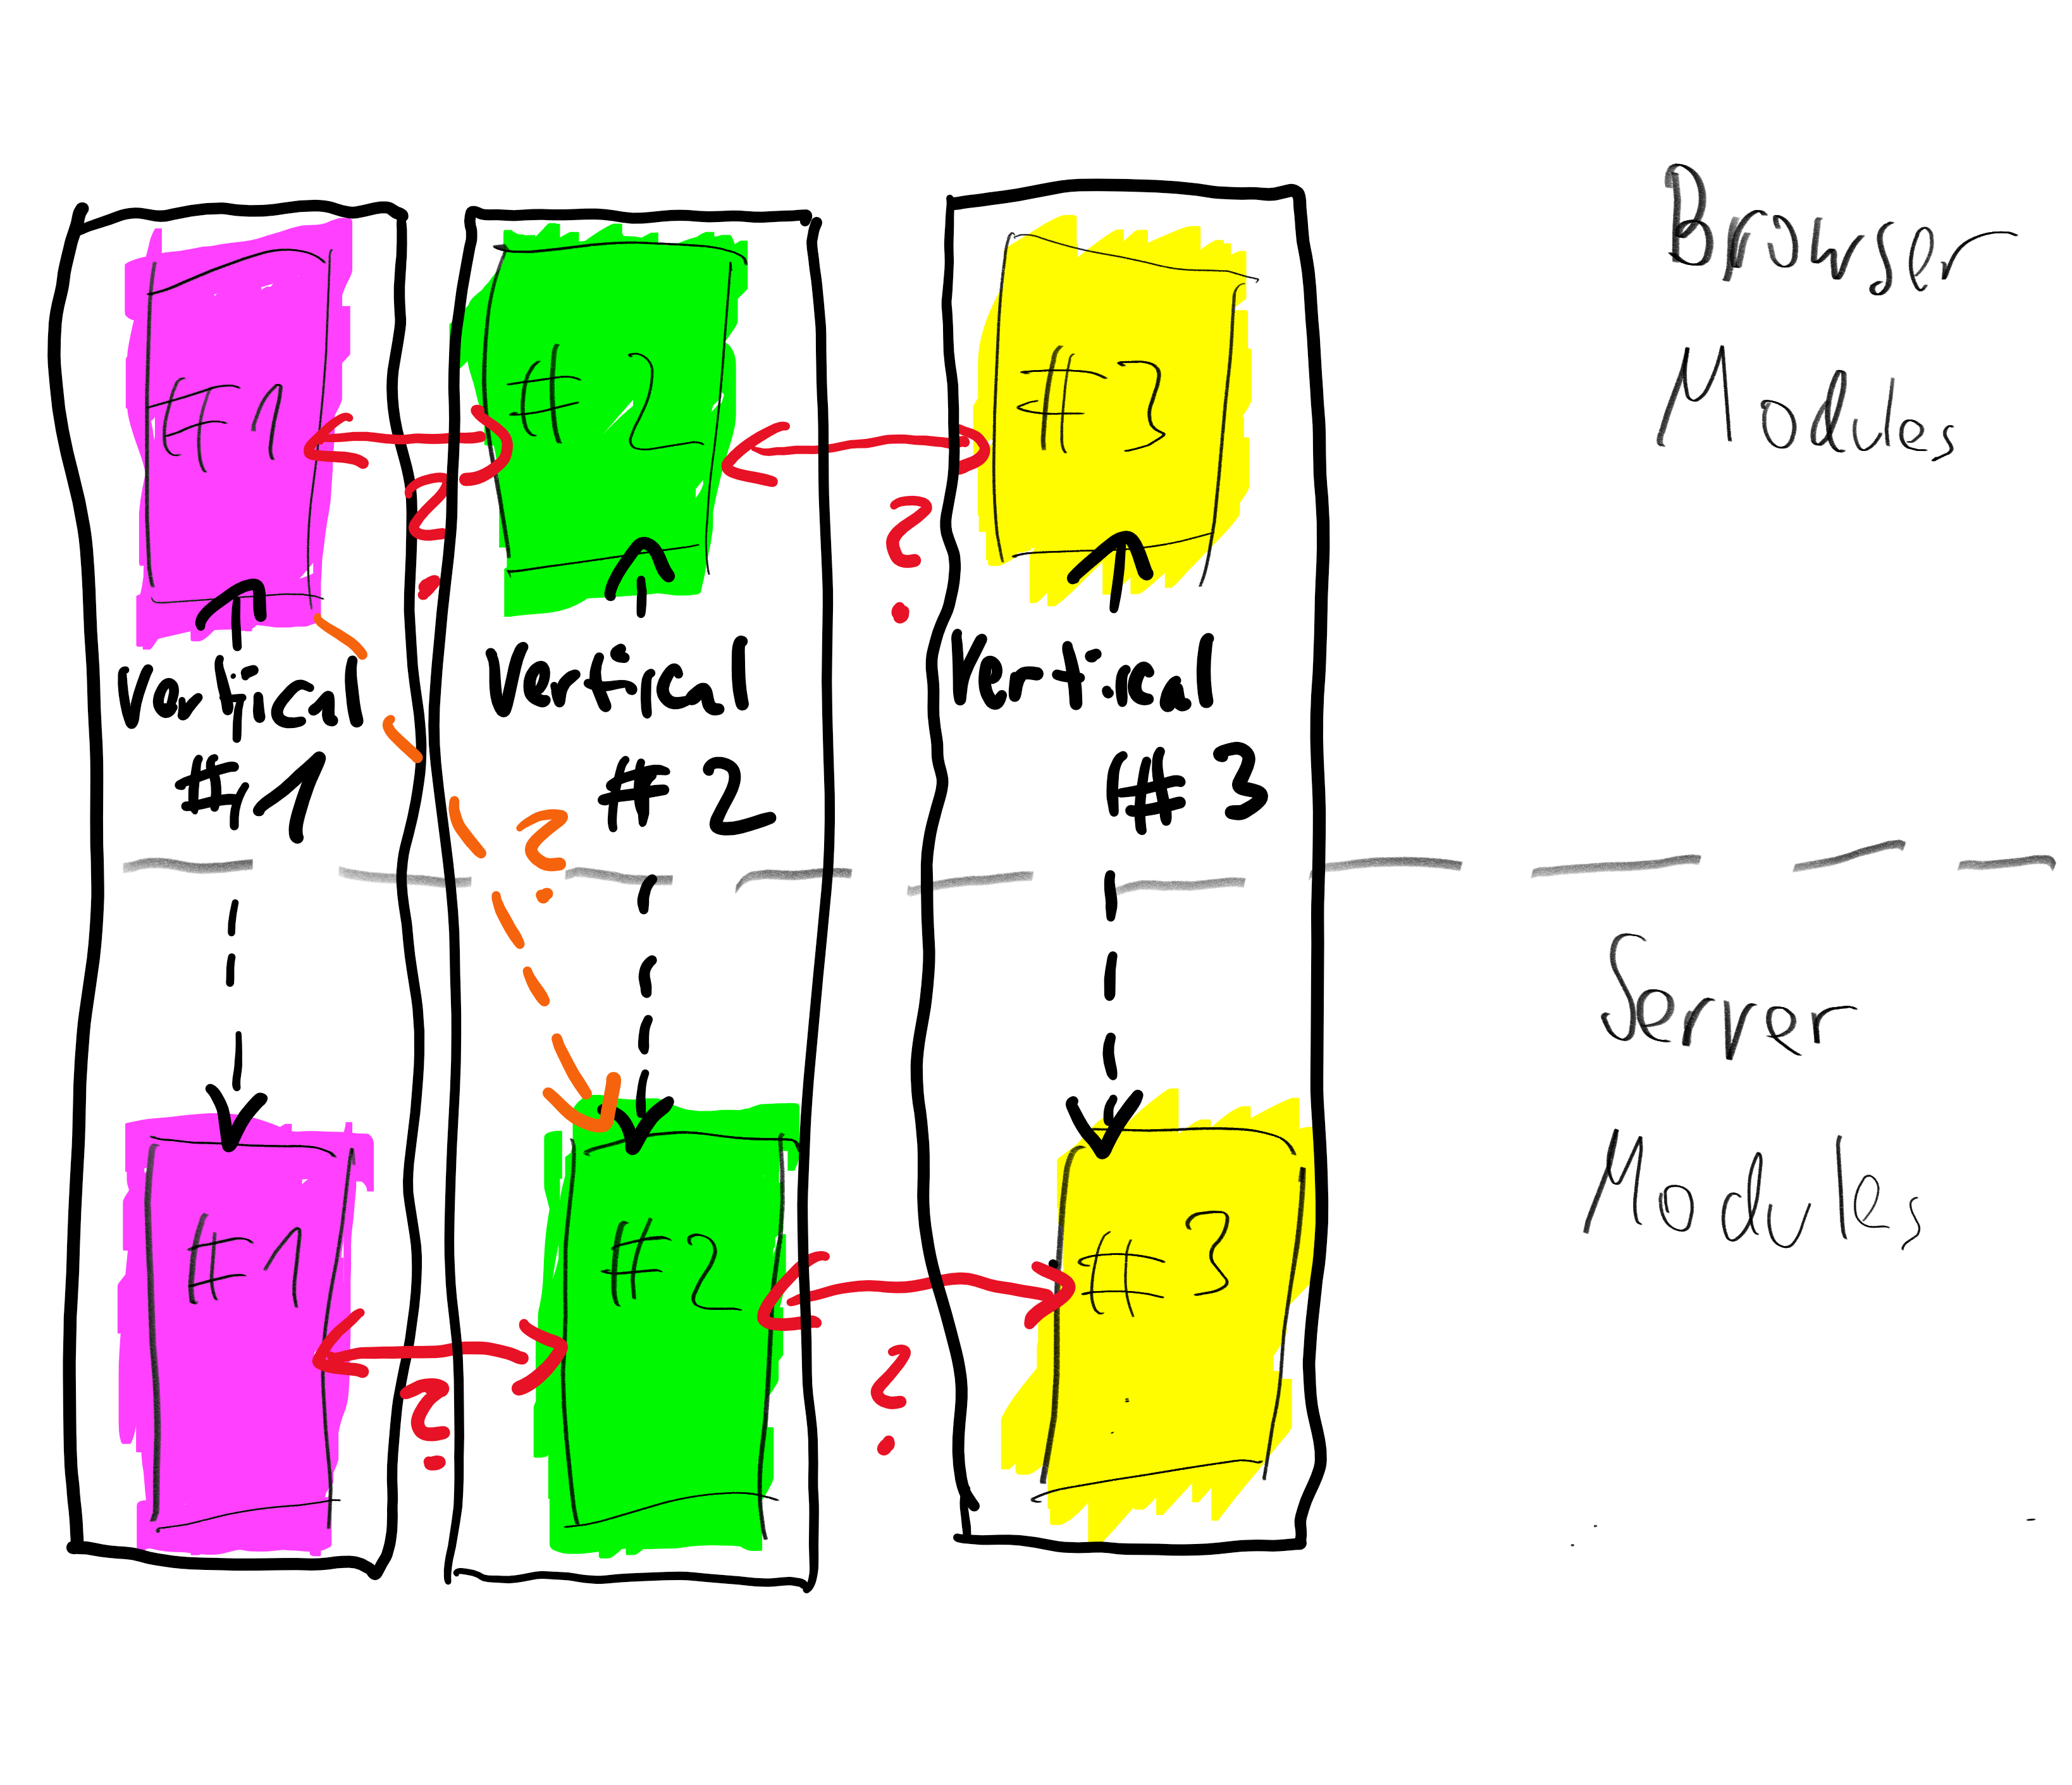 Browser
Modules
#1
#2
#3
?
?
Vertical
#1
Vertical
#2
Vertical
#3
?
Server
Modules
#1
#2
#3
?
?